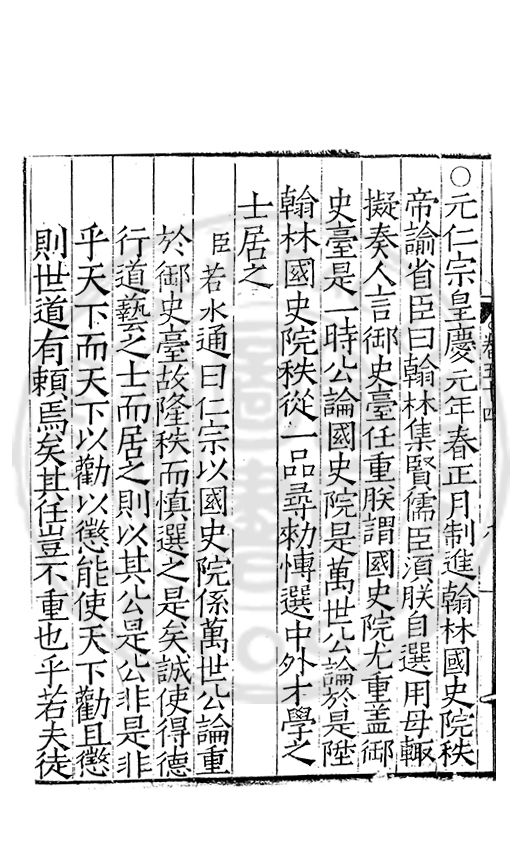 ○元仁宗皇慶元年春正月制進翰林國史院秩
帝諭省臣曰翰林集賢儒臣湏朕自選用毋輙
擬奏人言御史臺任重朕謂國史院尤重盖御
史臺是一時公論國史院是萬世公論於是陞
翰林國史院秩從一品尋勑慱選中外才學之
士居之
臣若水通曰仁宗以國史院係萬世公論重
於御史臺故隆秩而慎選之是矣誠使得德
行道藝之士而居之則以其公是公非是非
乎天下而天下以勸以懲能使天下勸且懲
則世道有賴焉矣其任豈不重也乎若夫徒